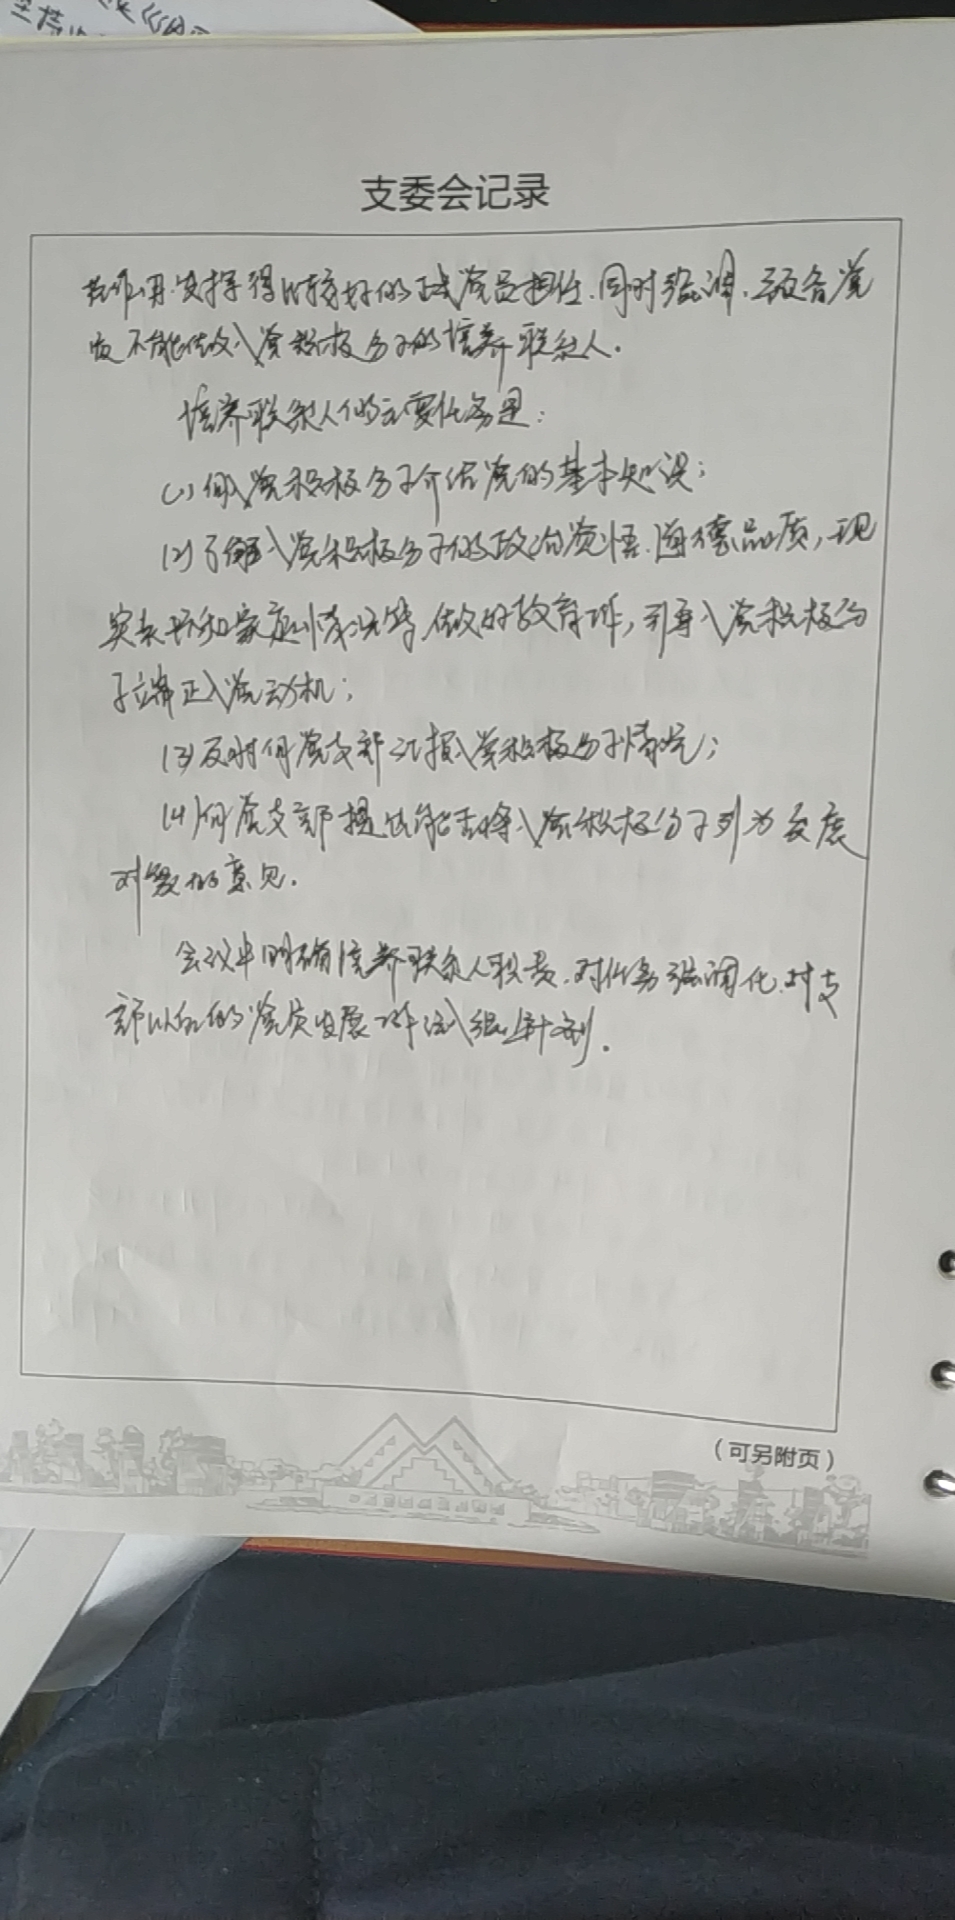 支委会记录
范作用发挥得比较好的正式党员担任.同时强调.预备党
员不能做入党积极分子的培养联系人.
培养联系人的主要任务是:
(1)向入党积极分子介绍党的基本知识;
(2)了解入党积极分子的政治觉悟.道德品质,现
实表现和家庭情况等,做好教育工作,引导入党积极分
子端正入党动机;
(3)及时向党支部汇报入党积极分子情况;
(4)向党支部提出能否将入党积极分子列为发展
对象的意见.
会议中明确培养联系人职责.对任务强调化.对支
部以后的党员发展工作注入组织计划.
(可另附页)